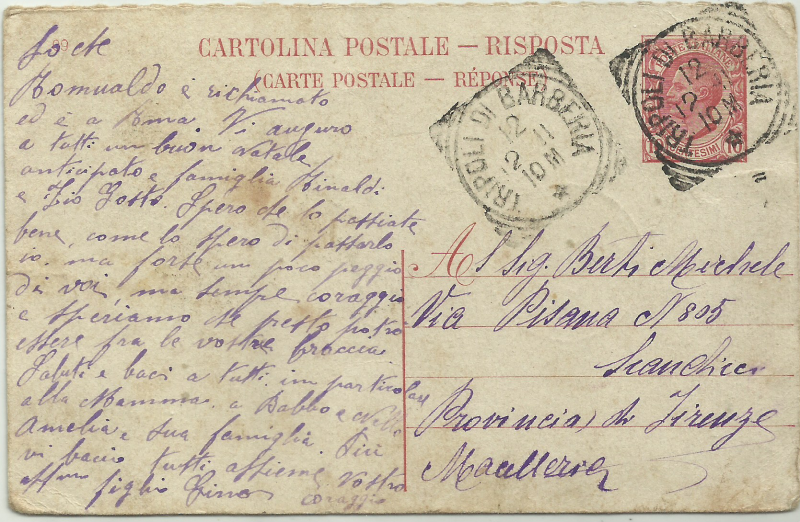 CARTOLINA POSTALE — RISPOSTA
(CARTE POSTALE — RÉPONSE)
TRIPOLI DI BARBERIA
12
12 11
10 M
TRIPOLI DI BARBERIA
12
12
10 M
So che
Romualdo è richiamato
ed è a Roma Vi auguro
a tutti un buon Natale
anticipato e famiglia Rinaldi
e Zio Tosto. Spero che lo passiate
bene, come lo spero di passarlo
io, ma forse un poco peggio
di voi, ma sempre coraggio
e speriamo che presto potrò
essere fra le vostre braccia.
Saluti e baci a tutti. in particolar
alla Mamma, a Babbo e Nello
Amelia e sua famiglia. Più
vi bacio tutti assieme Vostro
aff.mo figlio Gino
coraggio
Al Sig. Berti Michele
Via Pisana N 805
Scandicci
Provincia di Firenze
Macelleria